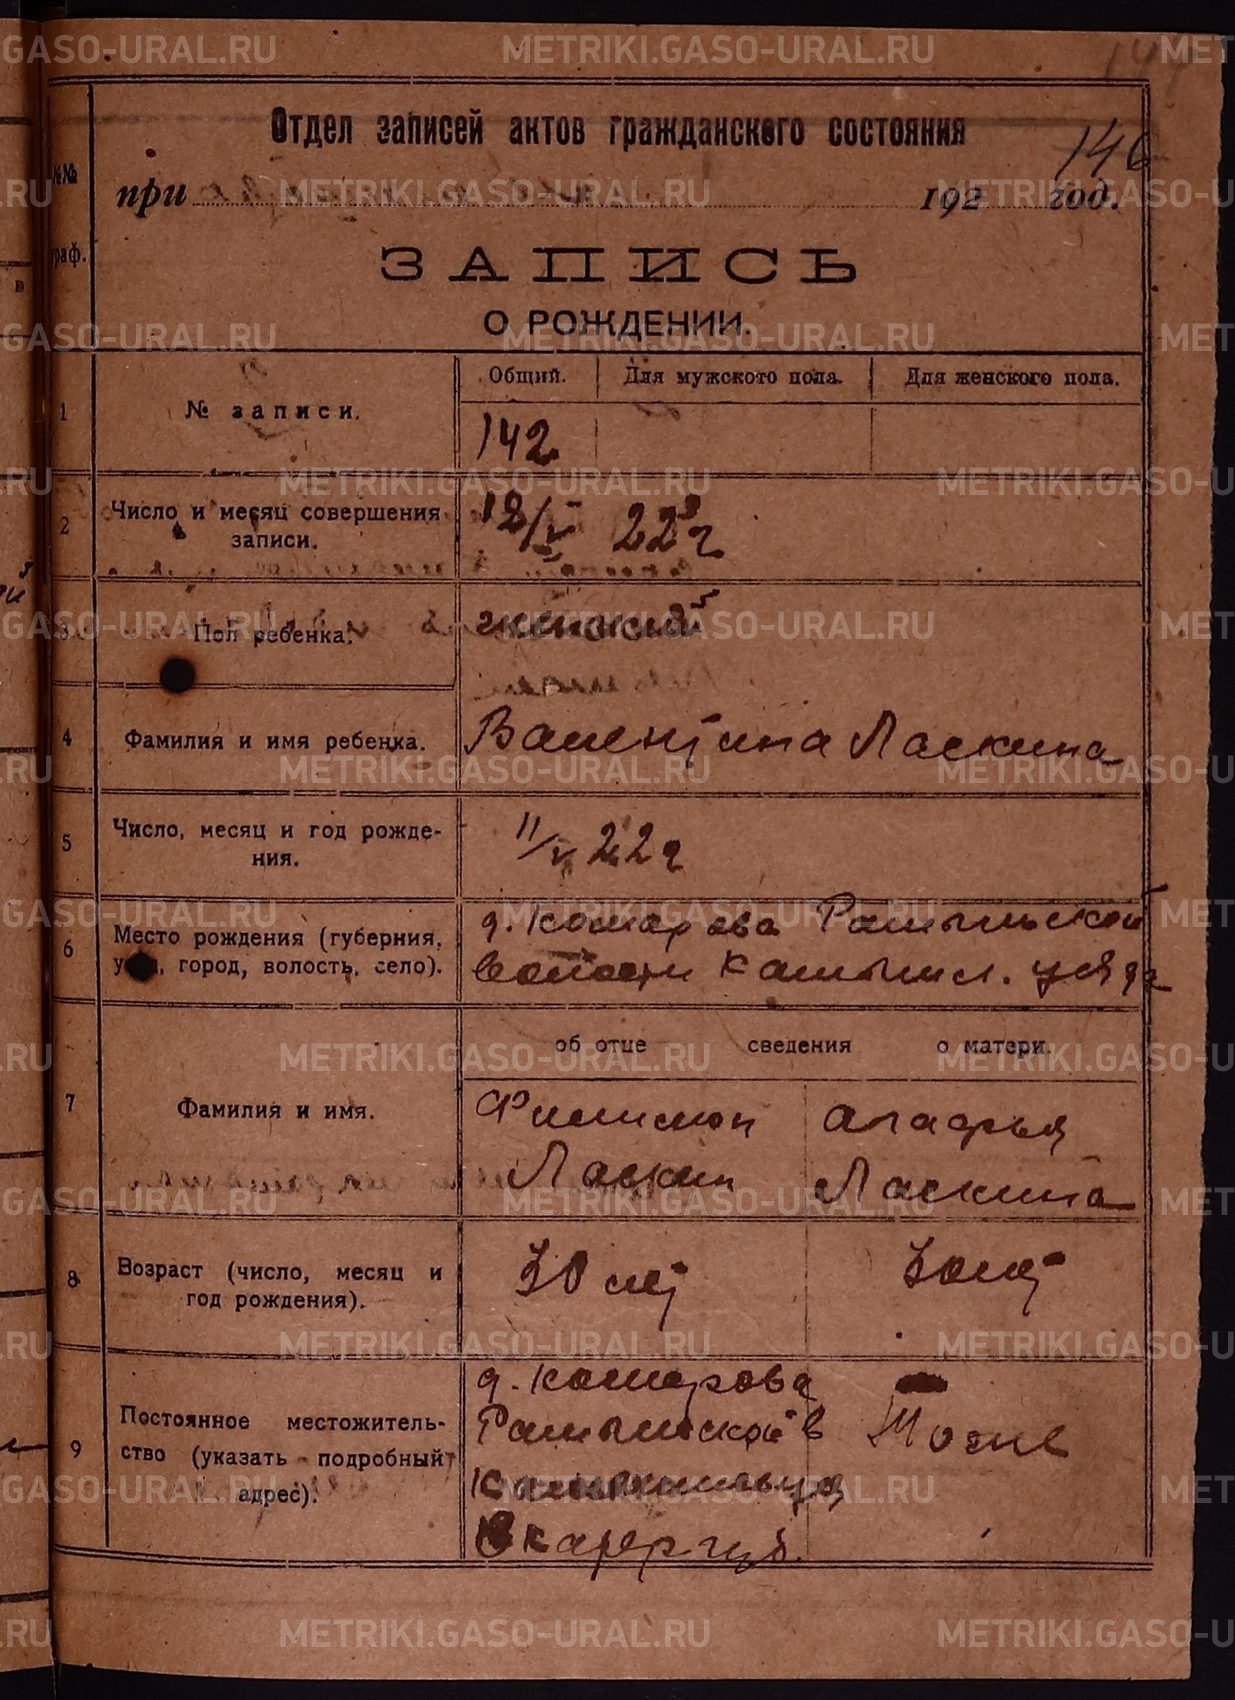 146
Отдел записей актов гражданского состояния
при 192 год.
ЗАПИСЬ
О РОЖДЕНИИ.
№№ граф.
1 № записи. Общий. Для мужского пола. Для женского пола.
142
2 Число и месяц совершения записи. 12/V 22 г
3 Пол ребенка. женский
4 Фамилия и имя ребенка. Валентина Ласкина
5 Число, месяц и год рождения. 11/V 22 г
6 Место рождения (губерния, город, волость, село). д. Комарова
волости Камышл. уезда
об отце сведения о матери.
7 Фамилия и имя. Филимон Агафья
Ласкин Ласкина
8 Возраст (число, месяц и год рождения). 30 лет 30 лет
9 Постоянное местожительство (указать подробный адрес). д. Комарова
Тоже
Екатер губ.
METRIKI.GASO-URAL.RU